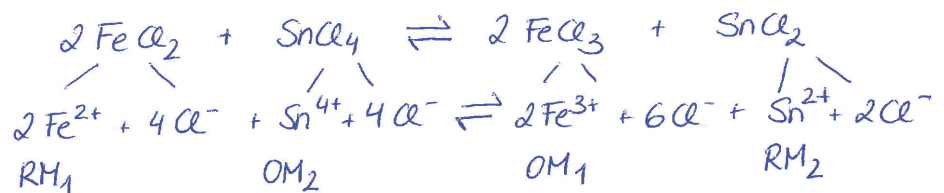 2 FeCl₂ + SnCl₄ ⇌ 2 FeCl₃ + SnCl₂
2Fe²⁺ + 4Cl⁻ + Sn⁴⁺ + 4Cl⁻ ⇌ 2Fe³⁺ + 6Cl⁻ + Sn²⁺ + 2Cl⁻
RM₁ OM₂ OM₁ RM₂